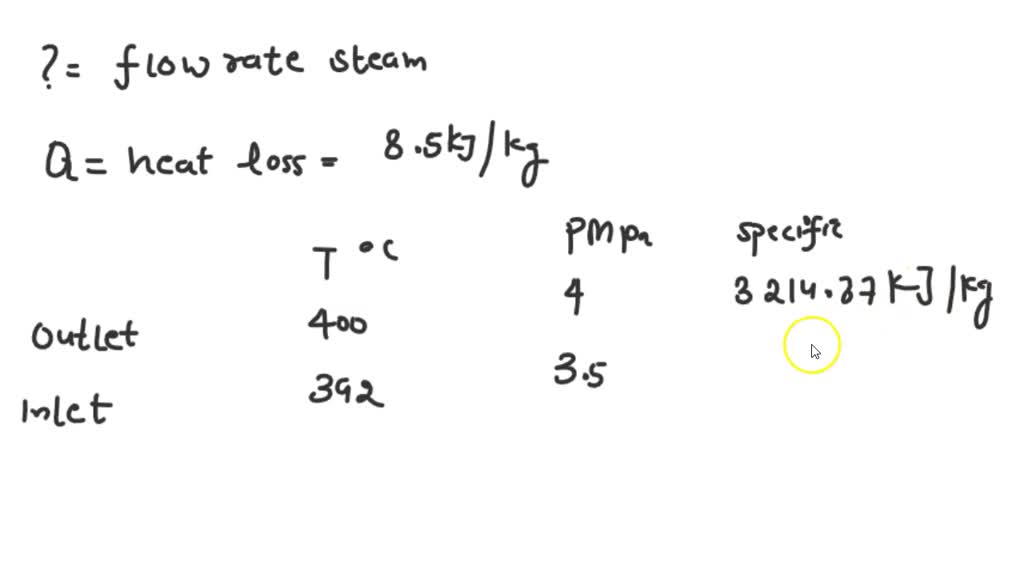 ?= flow rate steam
Q= heat loss = 8.5kJ/kg
T °C PMpa specific
Outlet 400 4 3214.37 KJ/kg
Inlet 392 3.5